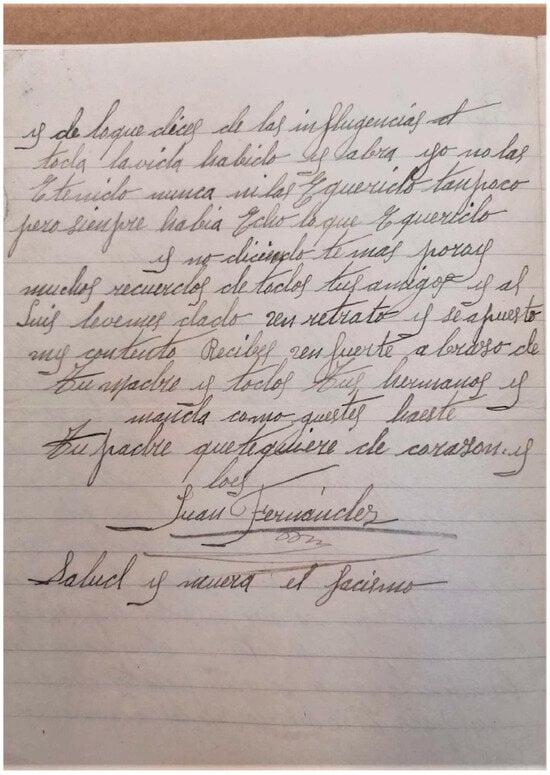 y de loque dices de las influgencias de
toda lavida habido y abra yo no las
E tenido nunca ni las E querido tanpoco
pero sienpre habia Echo loque E querido
y no diciendo te mas por oy
muchos recuerdos de todos tus amigos y al
Luis levemes dado un retrato y se a puesto
muy contento. Recibes un fuerte abraso de
Tu madre y todos Tus hermanos y
manda como questes haeste
Tu padre que te quiere de corazon. y
loes
Juan Fernández
Salud y muera el facismo